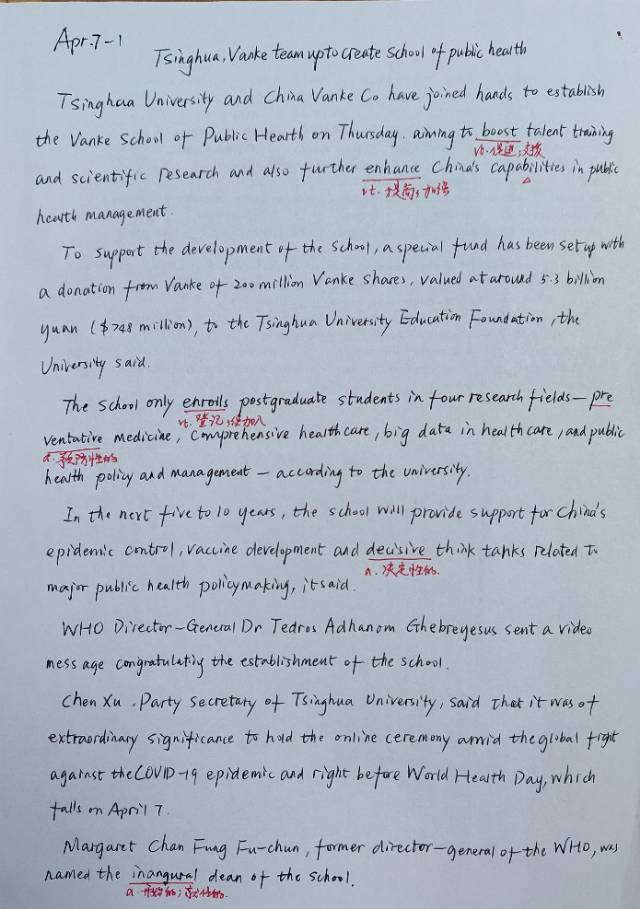 Apr.7-1
Tsinghua, Vanke team up to create School of public health
Tsinghua University and China Vanke Co have joined hands to establish
the Vanke School of Public Hearth on Thursday. aiming to boost talent training
vt.促进;支援
and scientific research and also further enhance China's capabilities in public
vt.提高;加强
health management.
To support the development of the School, a special fund has been set up with
a donation from Vanke of 200 million Vanke shares, valued at around 5.3 billion
yuan ($748 million), to the Tsinghua University Education Foundation, the
University said.
The School only enrolls postgraduate students in four research fields—pre
vt.登记;使加入
ventative medicine, comprehensive healthcare, big data in healthcare, and public
a.预防性的
health policy and management — according to the university.
In the next five to 10 years, the school will provide support for China's
epidemic control, vaccine development and decisive think tanks related to
a.决定性的.
major public health policymaking, it said.
WHO Director-General Dr Tedros Adhanom Ghebreyesus sent a video
mess age congratulating the establishment of the school.
Chen Xu. Party Secretary of Tsinghua University, said that it was of
extraordinary significance to hold the online ceremony amid the global fight
against the COVID-19 epidemic and right before World Health Day, which
falls on April 7.
Margaret Chan Fung Fu-chun, former director-general of the WHO, was
named the inangural dean of the School.
a.开始的;就任的.